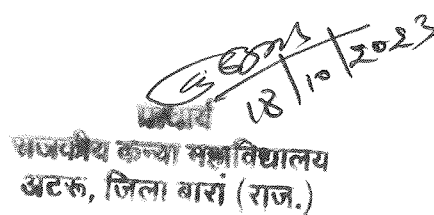 18/10/2023
प्राचार्य
राजकीय कन्या महाविद्यालय
अटरू, जिला बारां (राज.)